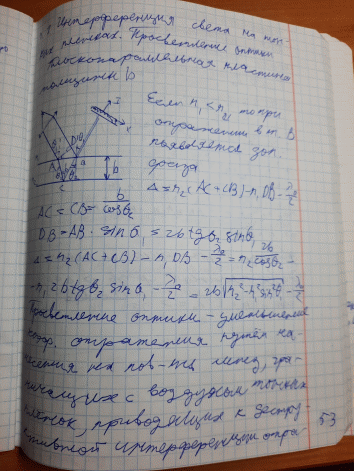 Интерференция света на тон-
ких пленках. Просветление оптики
Плоскопараллельная пластина
толщиной b
Если n₁ < n₂ то при
отражении в т. B
появляется доп.
фаза
Δ = n₂(AC + CB) - n₁DB - λ₀/2
AC = CB = b/cosθ₂
DB = AB · sinθ₁ = 2b tgθ₂ sinθ₁
Δ = n₂(AC + CB) - n₁DB - λ₀/2 = n₂ 2b/cosθ₂ -
- n₁ 2b tgθ₂ sinθ₁ - λ₀/2 = 2b√(n₂² - n₁² sin²θ₁) - λ₀/2
Просветление оптики - уменьшение
коэф. отражения путём на-
несения на пов-ть линз, гра-
ничащих с воздухом тонких
плёнок, приводящих к дестру-
ктивной интерференции отра-
53